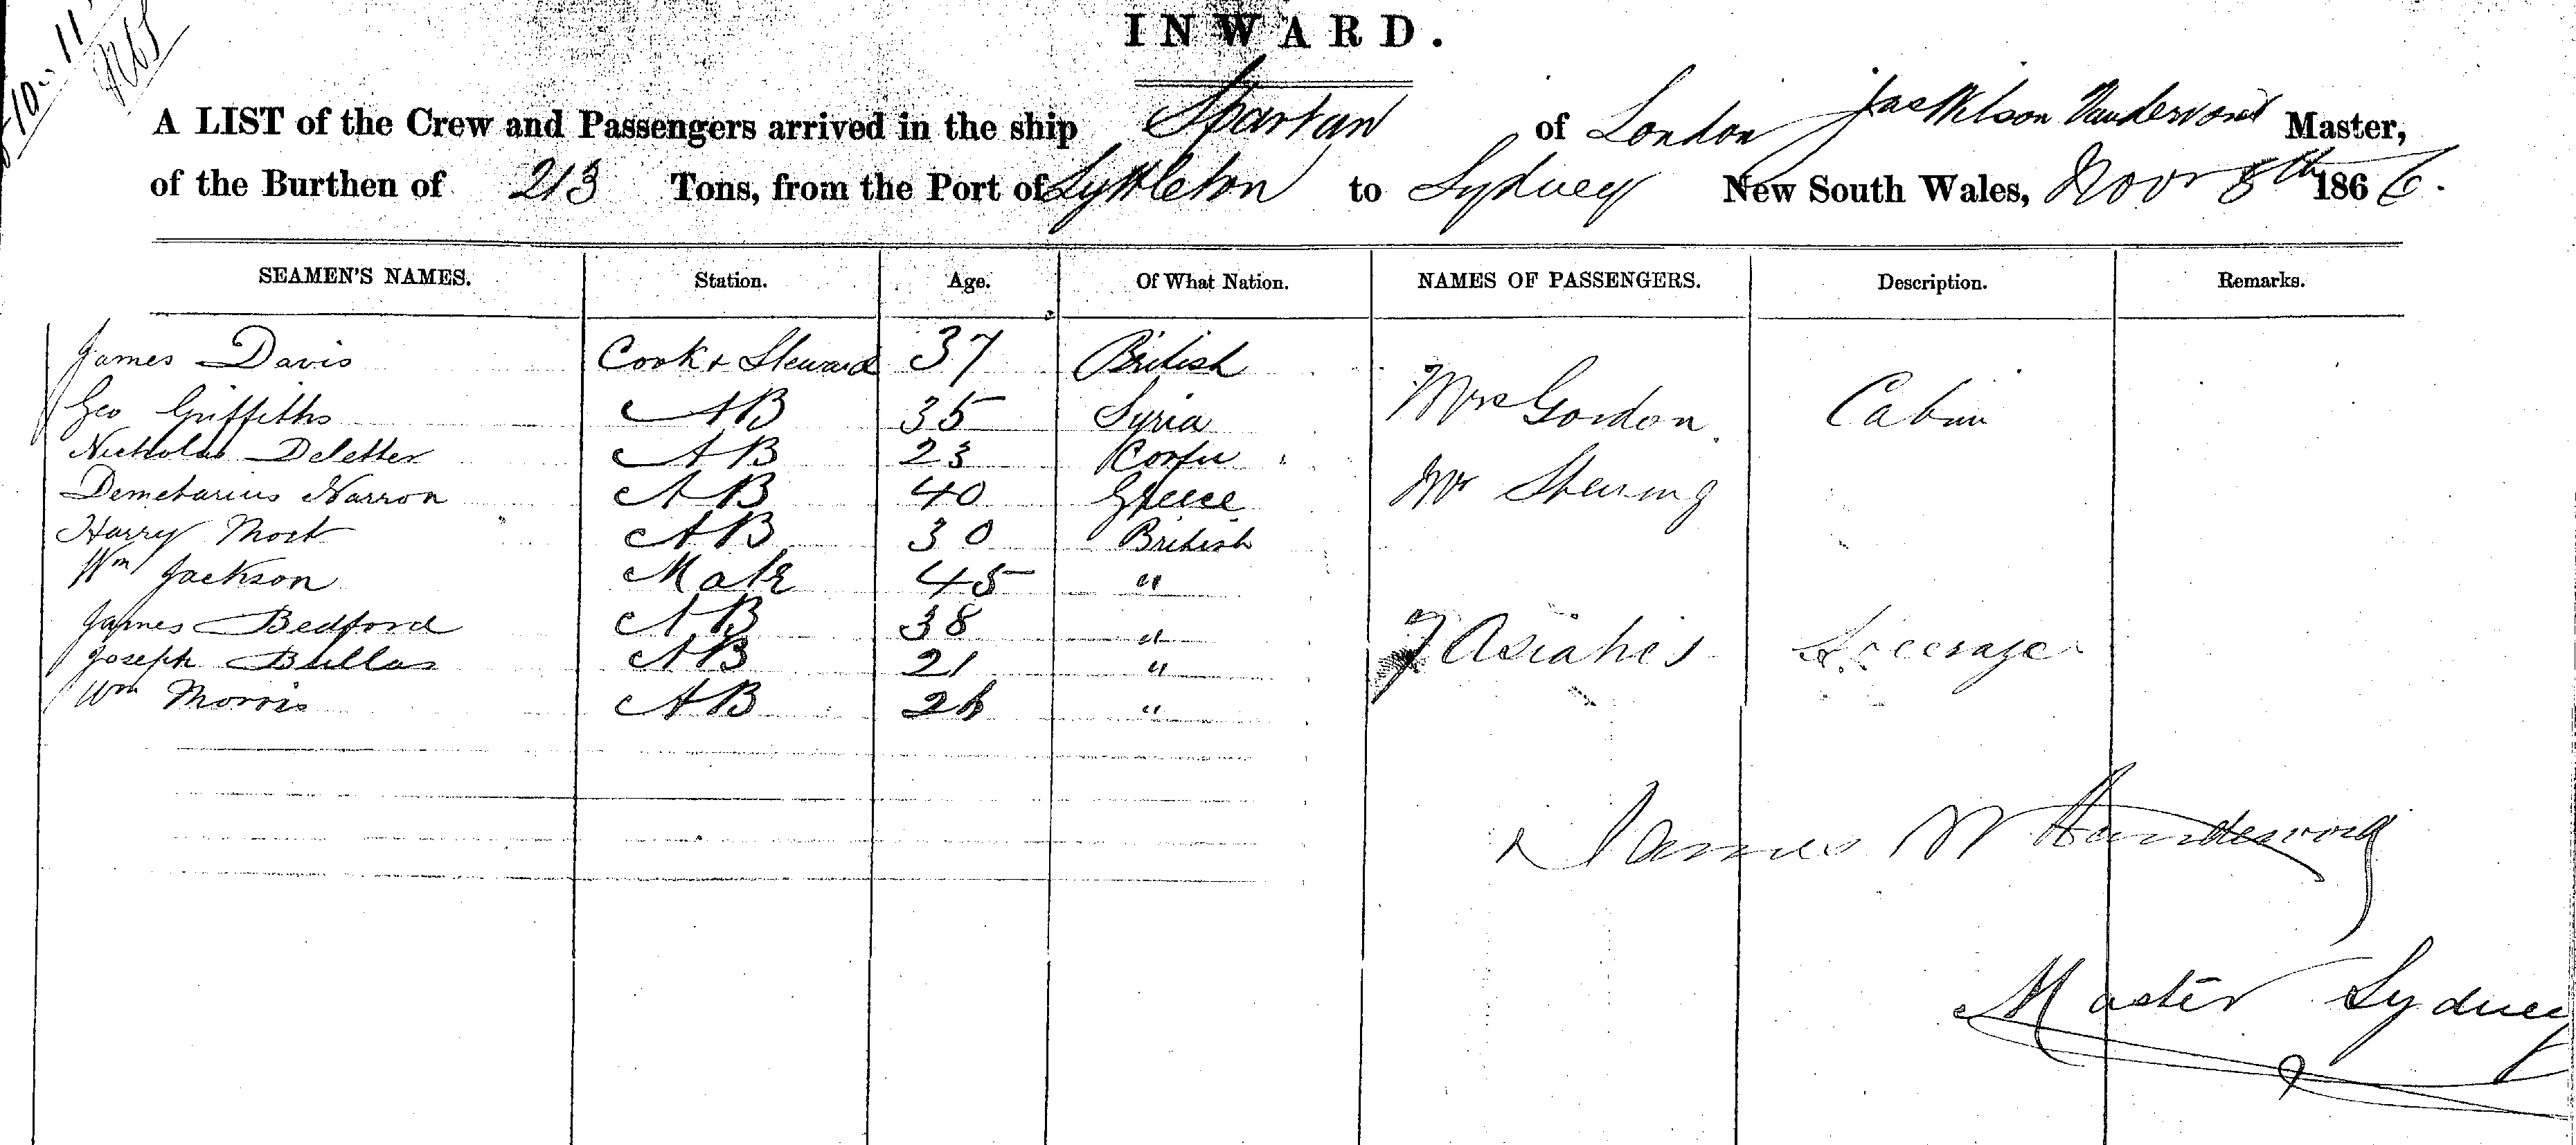 INWARD.
A LIST of the Crew and Passengers arrived in the ship Spartan of London Jas Wilson Vandervord Master,
of the Burthen of 213 Tons, from the Port of Lyttleton to Sydney New South Wales, Novr 8th 1866.
SEAMEN'S NAMES. Station. Age. Of What Nation. NAMES OF PASSENGERS. Description. Remarks.
James Davis Cook & Steward 37 British
Geo Griffiths AB 35 Syria Mrs Gordon Cabin
Nicholas Deletter AB 23 Corfu
Demetarius Narron AB 40 Greece Mr
Harry Most AB 30 British
Wm Jackson Mate 45 "
James Bedford AB 38 " 7 Asiatics Steerage
Joseph Bullas AB 21 "
Wm Morris AB 26 "
James W Vandervord
Master Sydney